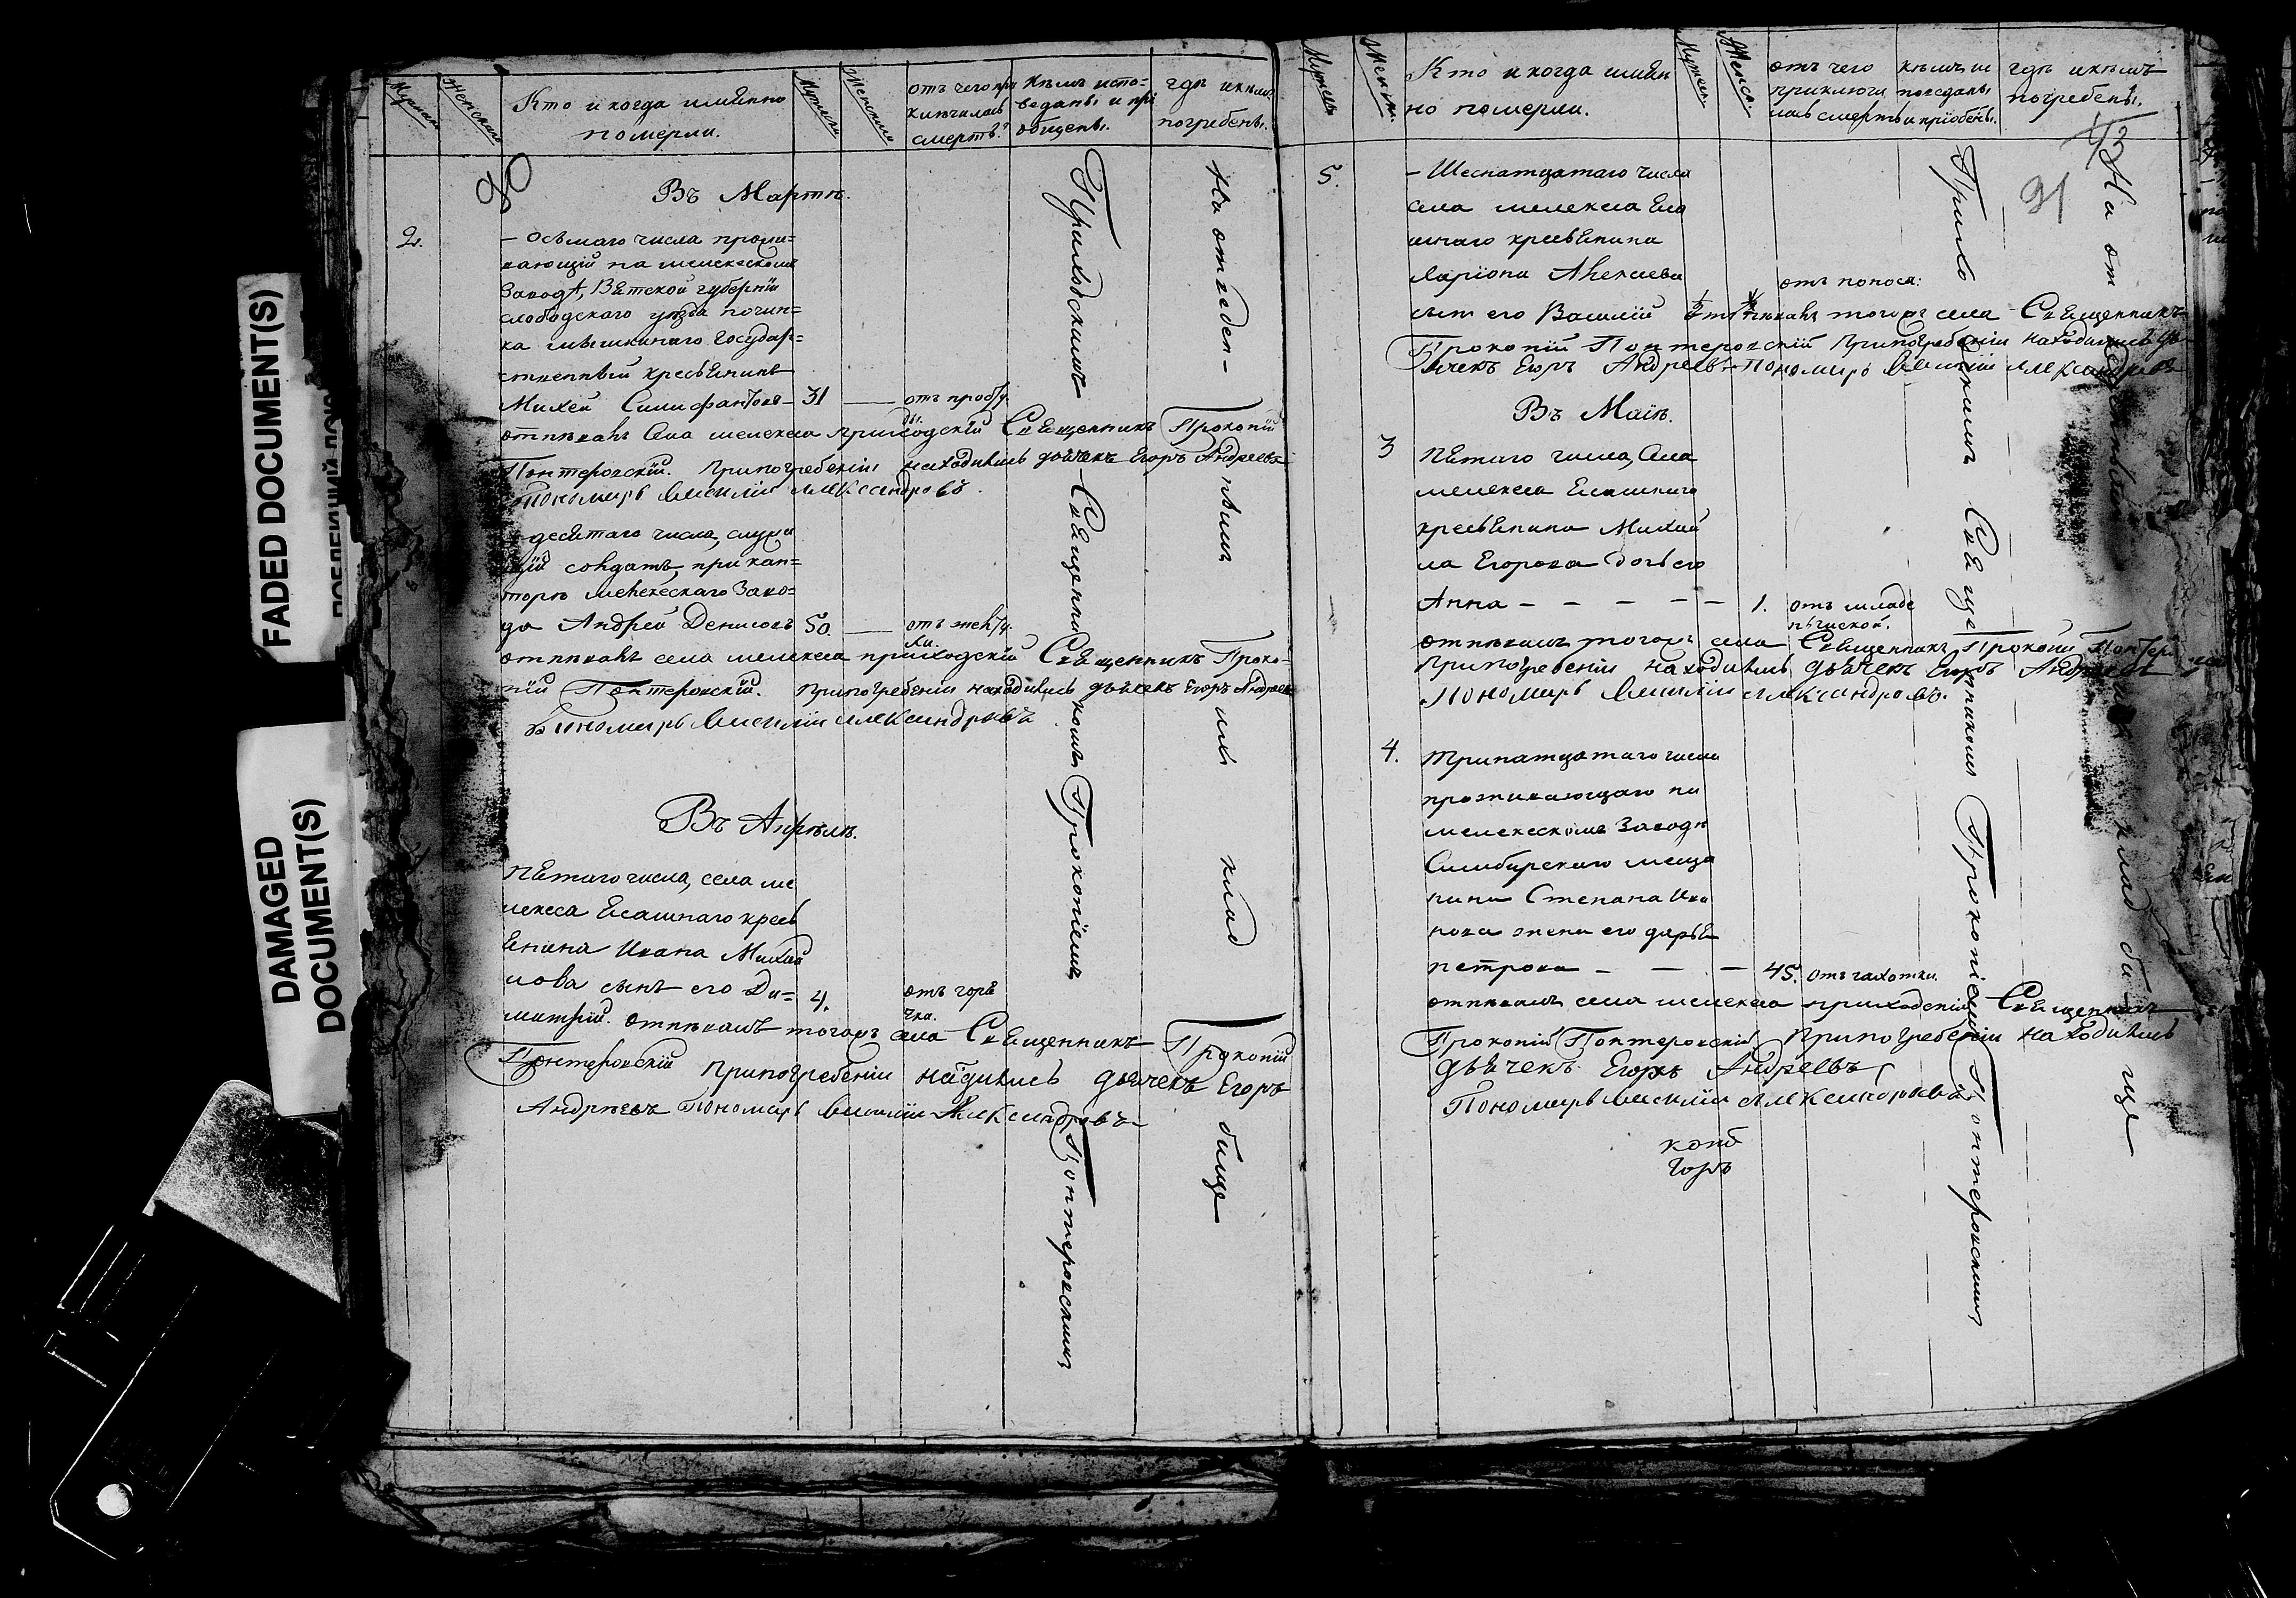 FADED DOCUMENT(S)
DAMAGED
DOCUMENT(S)
Мужска
Женскаго
Кто и когда имянно
померли.
Мужска
Женскаго
отъ чего при
ключилась
смерть?
кѣмъ испо=
веданы и прі
общены.
гдѣ и кѣмъ
погребены.
Въ Мартѣ.
2.
– осьмаго числа прожи=
вающій на мелекескомъ
Заводѣ, Вятской губерніи
слободскаго уѣзда почин=
ка
государ=
ственный кресьянинъ
Михей
31
отъ просту
ды.
отпѣвалъ села мелекеса приходскій Священникъ Прокопій
Понтеровскій. При погребеніи находились дьячекъ Егоръ Андреевъ
Пономарь Василій Александровъ.
десятаго числа, служа
щій солдатъ, при кан=
торѣ мелекескаго Заво=
да Андрей Денисовъ
50.
отъ желту
хи.
отпѣвалъ села мелекеса приходскій Священникъ Проко=
пій Понтеровскій. При погребеніи находились дьячекъ Егоръ Андреевъ
Пономарь Василій Александровъ
Въ Апрѣлѣ.
пятаго числа, села ме
лекеса Ясашнаго кресь
янина Ивана Михай
лова сынъ его Ди=
4.
отъ горя
чки.
митрій. отпѣвалъ тогожъ села Священникъ Прокопій
Понтеровскій При погребеніи находились дьячекъ Егоръ
Андреевъ Пономарь Василій Александровъ
Приходскимъ Священникомъ Прокопіемъ Понтеровскимъ
На отведен-нымъ кладбище
Мужска
Женск.
Кто и когда имян
но померли.
Мужск.
Женск.
отъ чего
приключи
лась смерть
кѣмъ ис
поведаны
и пріобщены.
гдѣ и кѣмъ
погребены.
43
91
5.
– Шеснатцатаго числа
села мелекеса Яса
шнаго кресьянина
Ларіона Алексеева
отъ поноса:
сынъ его Василій
отпѣвалъ тогожъ села Священникъ
Прокопій Понтеровскій При погребеніи находились дь
ячекъ Егоръ Андреевъ Пономарь Василій Александровъ
Въ Маіѣ.
3
пятаго числа, села
мелекеса Ясашнаго
кресьянина Михай
ла Егорова дочь его
Анна – – – – –
1.
отъ младе
нческой.
отпѣвалъ тогожъ села Священникъ Прокопій Понтеро
При погребеніи находились дьячекъ Егоръ Андреевъ
Пономарь Василій Александровъ.
4.
тринатцатаго числа
проживающаго на
мелекескомъ Заводѣ
Симбирскаго меща
нина Степана Ива
нова жена его дарья
петрова – – –
45.
отъ чахотки.
отпѣвалъ села мелекеса приходскій Священникъ
Прокопій Понтеровскій При погребеніи находились
дьячекъ Егоръ Андреевъ
Пономарь Василій Александровъ
Приходскимъ Священникомъ Прокопіемъ Понтеровскимъ
На отведенномъ кладбище